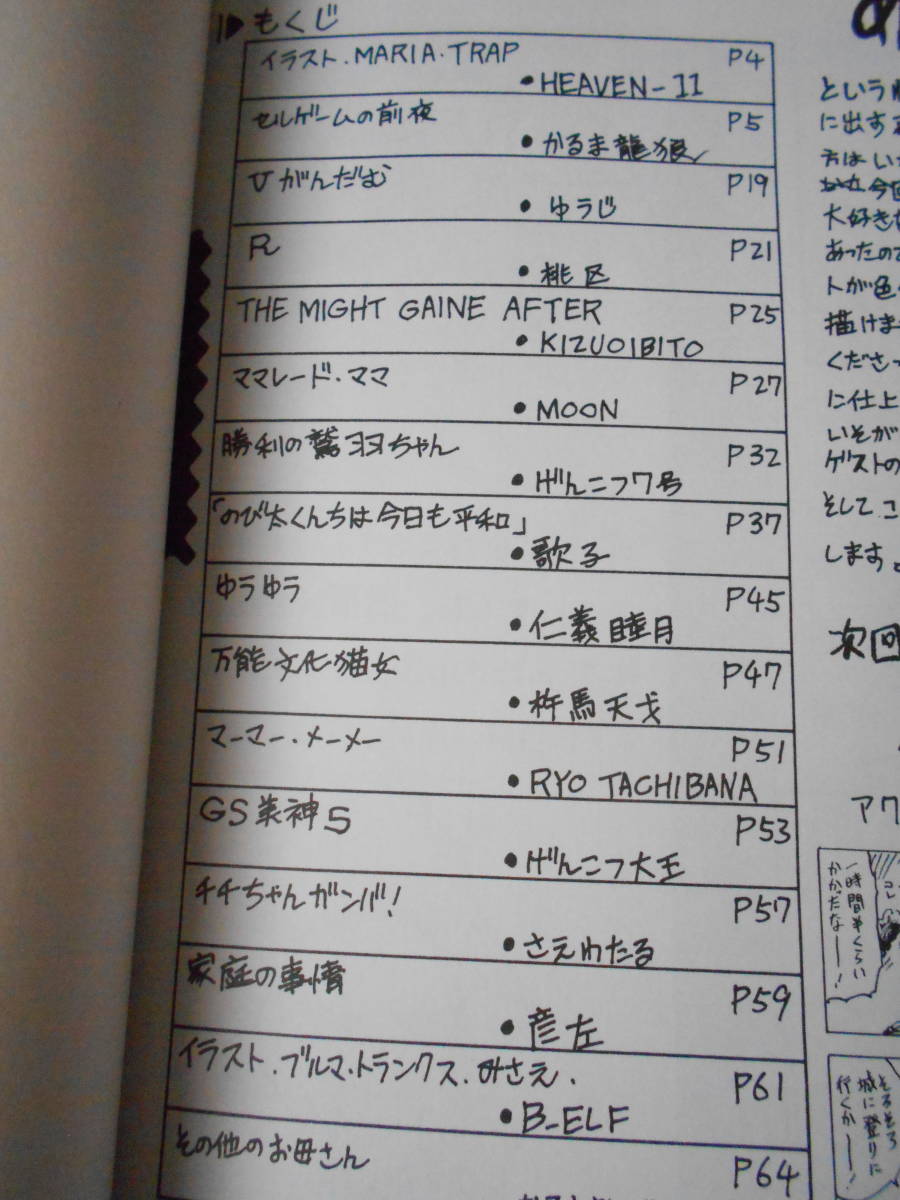 もくじ
イラスト.MARIA.TRAP P4
•HEAVEN-11
セルゲームの前夜 P5
•かるま龍狼
Vがんだむ P19
•ゆうじ
R P21
•桃区
THE MIGHT GAINE AFTER P25
•KIZUOIBITO
ママレード・ママ P27
•MOON
勝利の鷲羽ちゃん P32
•げんこつ7号
「のび太くんちは今日も平和」 P37
•歌子
ゆうゆう P45
•仁義睦月
万能文化猫女 P47
•杵馬天戈
マーマー・メーメー P51
•RYO TACHIBANA
GS美神S P53
•げんこつ大王
チチちゃんガンバ! P57
•さえわたる
家庭の事情 P59
•彦左
イラスト.ブルマ・トランクス.みさえ. P61
•B-ELF
その他のお母さん P64
という
に出す
方はい
今回
大好き
あったので
トが色
描けま
くださっ
に仕上
いそが
ゲストの
そして、こ
します。
次回
アク
一時間半くらい
かかったなー!
コレ
そろそろ
城に登りに
行くかー!